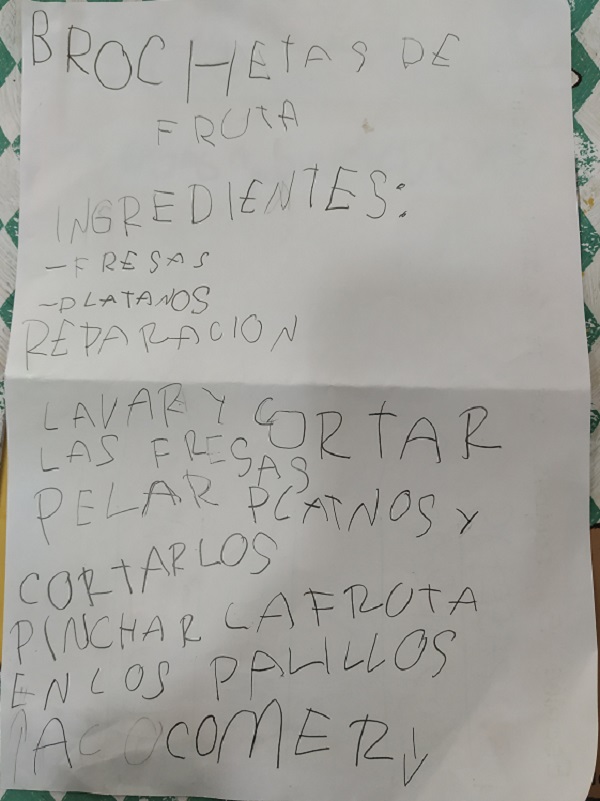 BROCHETAS DE
FRUTA
INGREDIENTES:
-FRESAS
-PLATANOS
REPARACION
LAVAR Y CORTAR
LAS FRESAS
PELAR PLATNOS Y
CORTARLOS
PINCHAR LA FRUTA
EN LOS PALILLOS
¡A COCOMER!